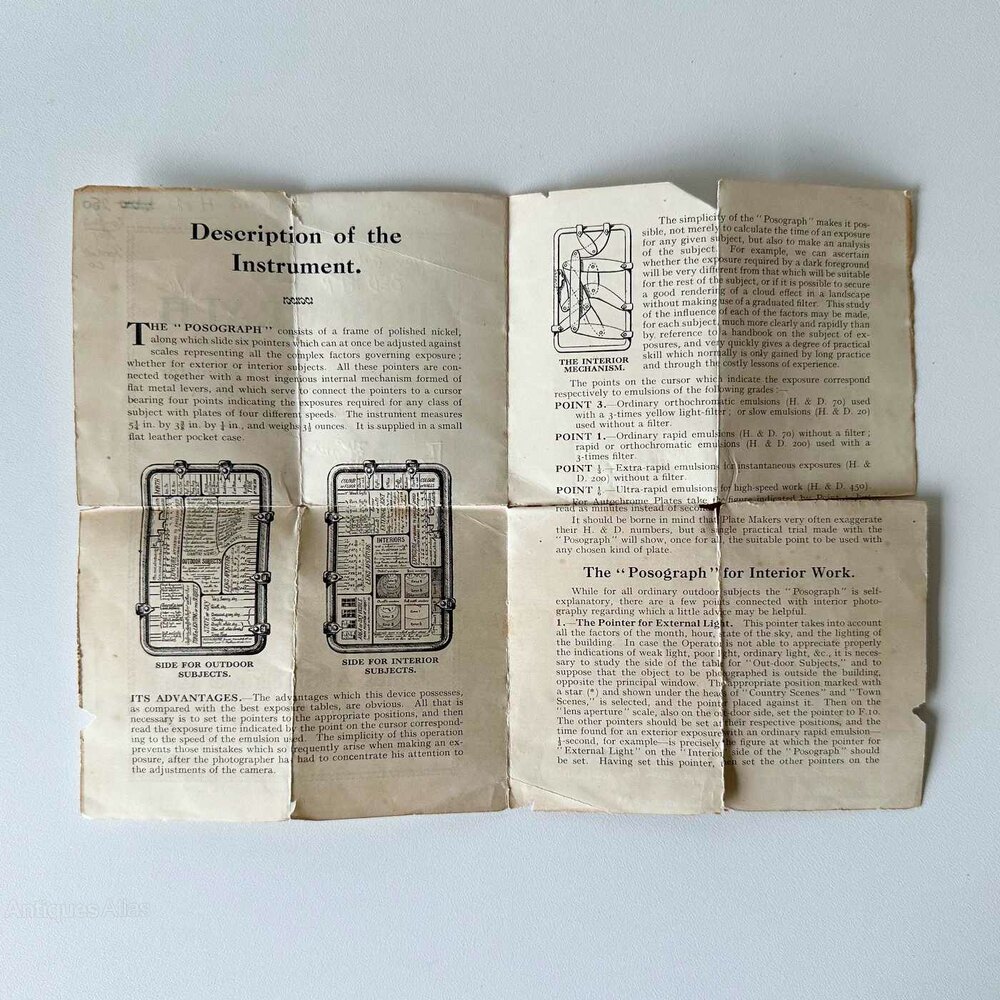 Description of the
Instrument.
THE "POSOGRAPH" consists of a frame of polished nickel,
along which slide six pointers which can at once be adjusted against
scales representing all the complex factors governing exposure;
whether for exterior or interior subjects. All these pointers are con-
nected together with a most ingenious internal mechanism formed of
flat metal levers, and which serve to connect the pointers to a cursor
bearing four points indicating the exposures required for any class of
subject with plates of four different speeds. The instrument measures
in. by in. by in., and weighs 3½ ounces. It is supplied in a small
flat leather pocket case.
OUTDOOR SUBJECTS
INTERIORS
SIDE FOR OUTDOOR
SUBJECTS.
SIDE FOR INTERIOR
SUBJECTS.
ITS ADVANTAGES.—The advantages which this device possesses,
as compared with the best exposure tables, are obvious. All that is
necessary is to set the pointers to the appropriate positions, and then
read the exposure time indicated by the point on the cursor correspond-
ing to the speed of the emulsion used. The simplicity of this operation
prevents those mistakes which so frequently arise when making an ex-
posure, after the photographer has had to concentrate his attention to
the adjustments of the camera.
The simplicity of the "Posograph" makes it pos-
sible, not merely to calculate the time of an exposure
for any given subject, but also to make an analysis
of the subject. For example, we can ascertain
whether the exposure required by a dark foreground
will be very different from that which will be suitable
for the rest of the subject, or if it is possible to secure
a good rendering of a cloud effect in a landscape
without making use of a graduated filter. This study
of the influence of each of the factors may be made,
for each subject, much more clearly and rapidly than
by reference to a handbook on the subject of ex-
posures, and very quickly gives a degree of practical
skill which normally is only gained by long practice
and through the costly lessons of experience.
THE INTERIOR
MECHANISM.
The points on the cursor which indicate the exposure correspond
respectively to emulsions of the following grades:—
POINT 3.—Ordinary orthochromatic emulsions (H. & D. 70) used
with a 3-times yellow light-filter; or slow emulsions (H. & D. 20)
used without a filter.
POINT 1.—Ordinary rapid emulsions (H. & D. 70) without a filter;
rapid or orthochromatic emulsions (H. & D. 200) used with a
3-times filter.
POINT —Extra-rapid emulsions for instantaneous exposures (H. &
D. 200) without filter.
POINT —Ultra-rapid emulsions for high-speed work (H. & D. 450)
For Autochrome Plates take the figure indicated by Pointer
read as minutes instead of seconds
It should be borne in mind that Plate Makers very often exaggerate
their H. & D. numbers, but a single practical trial made with the
"Posograph" will show, once for all, the suitable point to be used with
any chosen kind of plate.
The "Posograph" for Interior Work.
While for all ordinary outdoor subjects the "Posograph" is self-
explanatory, there are a few points connected with interior photo-
graphy regarding which a little advice may be helpful.
1.—The Pointer for External Light. This pointer takes into account
all the factors of the month, hour, state of the sky, and the lighting
of the building. In case the Operator is not able to appreciate properly
the indications of weak light, poor light, ordinary light, &c., it is neces-
sary to study the side of the table for "Out-door Subjects," and to
suppose that the object to be photographed is outside the building,
opposite the principal window. The appropriate position marked with
a star (*) and shown under the heads of "Country Scenes" and "Town
Scenes," is selected, and the pointer placed against it. Then on the
"lens aperture" scale, also on the out-door side, set the pointer to F.10.
The other pointers should be set at their respective positions, and the
time found for an exterior exposure with an ordinary rapid emulsion—
½-second, for example—is precisely the figure at which the pointer for
"External Light" on the "Interior" side of the "Posograph" should
be set. Having set this pointer, then set the other pointers on the
Antiques Atlas